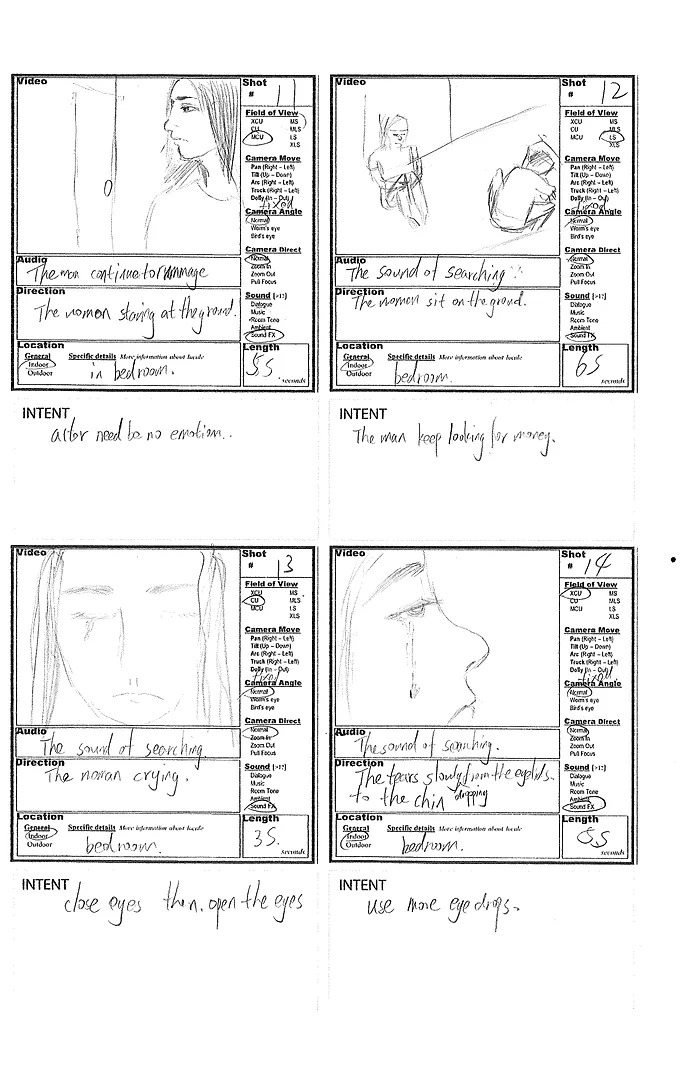 Video
Shot
# 11
Field of View
XCU MS
CU MLS
MCU LS
XLS
Camera Move
Pan (Right – Left)
Tilt (Up – Down)
Arc (Right – Left)
Truck (Right – Left)
Dolly (In – Out)
fixed
Camera Angle
Normal
Worm's eye
Bird's eye
Camera Direct
Normal
Zoom In
Zoom Out
Pull Focus
Audio
The man continue to rummage
Direction
The women staring at the ground.
Sound [>12]
Dialogue
Music
Room Tone
Ambient
Sound FX
Location
General Specific details More information about locale
Indoor
Outdoor
in bedroom.
Length
5S.
seconds
INTENT
actor need be no emotion..
Video
Shot
# 12
Field of View
XCU MS
CU MLS
MCU LS
XLS
Camera Move
Pan (Right – Left)
Tilt (Up – Down)
Arc (Right – Left)
Truck (Right – Left)
Dolly (In – Out)
fixed
Camera Angle
Normal
Worm's eye
Bird's eye
Camera Direct
Normal
Zoom In
Zoom Out
Pull Focus
Audio
The sound of searching
Direction
The women sit on the ground.
Sound [>12]
Dialogue
Music
Room Tone
Ambient
Sound FX
Location
General Specific details More information about locale
Indoor
Outdoor
bedroom.
Length
6S
seconds
INTENT
The man keep looking for money.
Video
Shot
# 13
Field of View
XCU MS
CU MLS
MCU LS
XLS
Camera Move
Pan (Right – Left)
Tilt (Up – Down)
Arc (Right – Left)
Truck (Right – Left)
Dolly (In – Out)
fixed
Camera Angle
Normal
Worm's eye
Bird's eye
Camera Direct
Normal
Zoom In
Zoom Out
Pull Focus
Audio
The sound of searching
Direction
The woman crying.
Sound [>12]
Dialogue
Music
Room Tone
Ambient
Sound FX
Location
General Specific details More information about locale
Indoor
Outdoor
bedroom.
Length
3S.
seconds
INTENT
close eyes then. open the eyes
Video
Shot
# 14
Field of View
XCU MS
CU MLS
MCU LS
XLS
Camera Move
Pan (Right – Left)
Tilt (Up – Down)
Arc (Right – Left)
Truck (Right – Left)
Dolly (In – Out)
fixed
Camera Angle
Normal
Worm's eye
Bird's eye
Camera Direct
Normal
Zoom In
Zoom Out
Pull Focus
Audio
The sound of searching.
Direction
The tears slowly from the eyelids.
to the chin dropping
Sound [>12]
Dialogue
Music
Room Tone
Ambient
Sound FX
Location
General Specific details More information about locale
Indoor
Outdoor
bedroom.
Length
seconds
INTENT
use more eye drops.